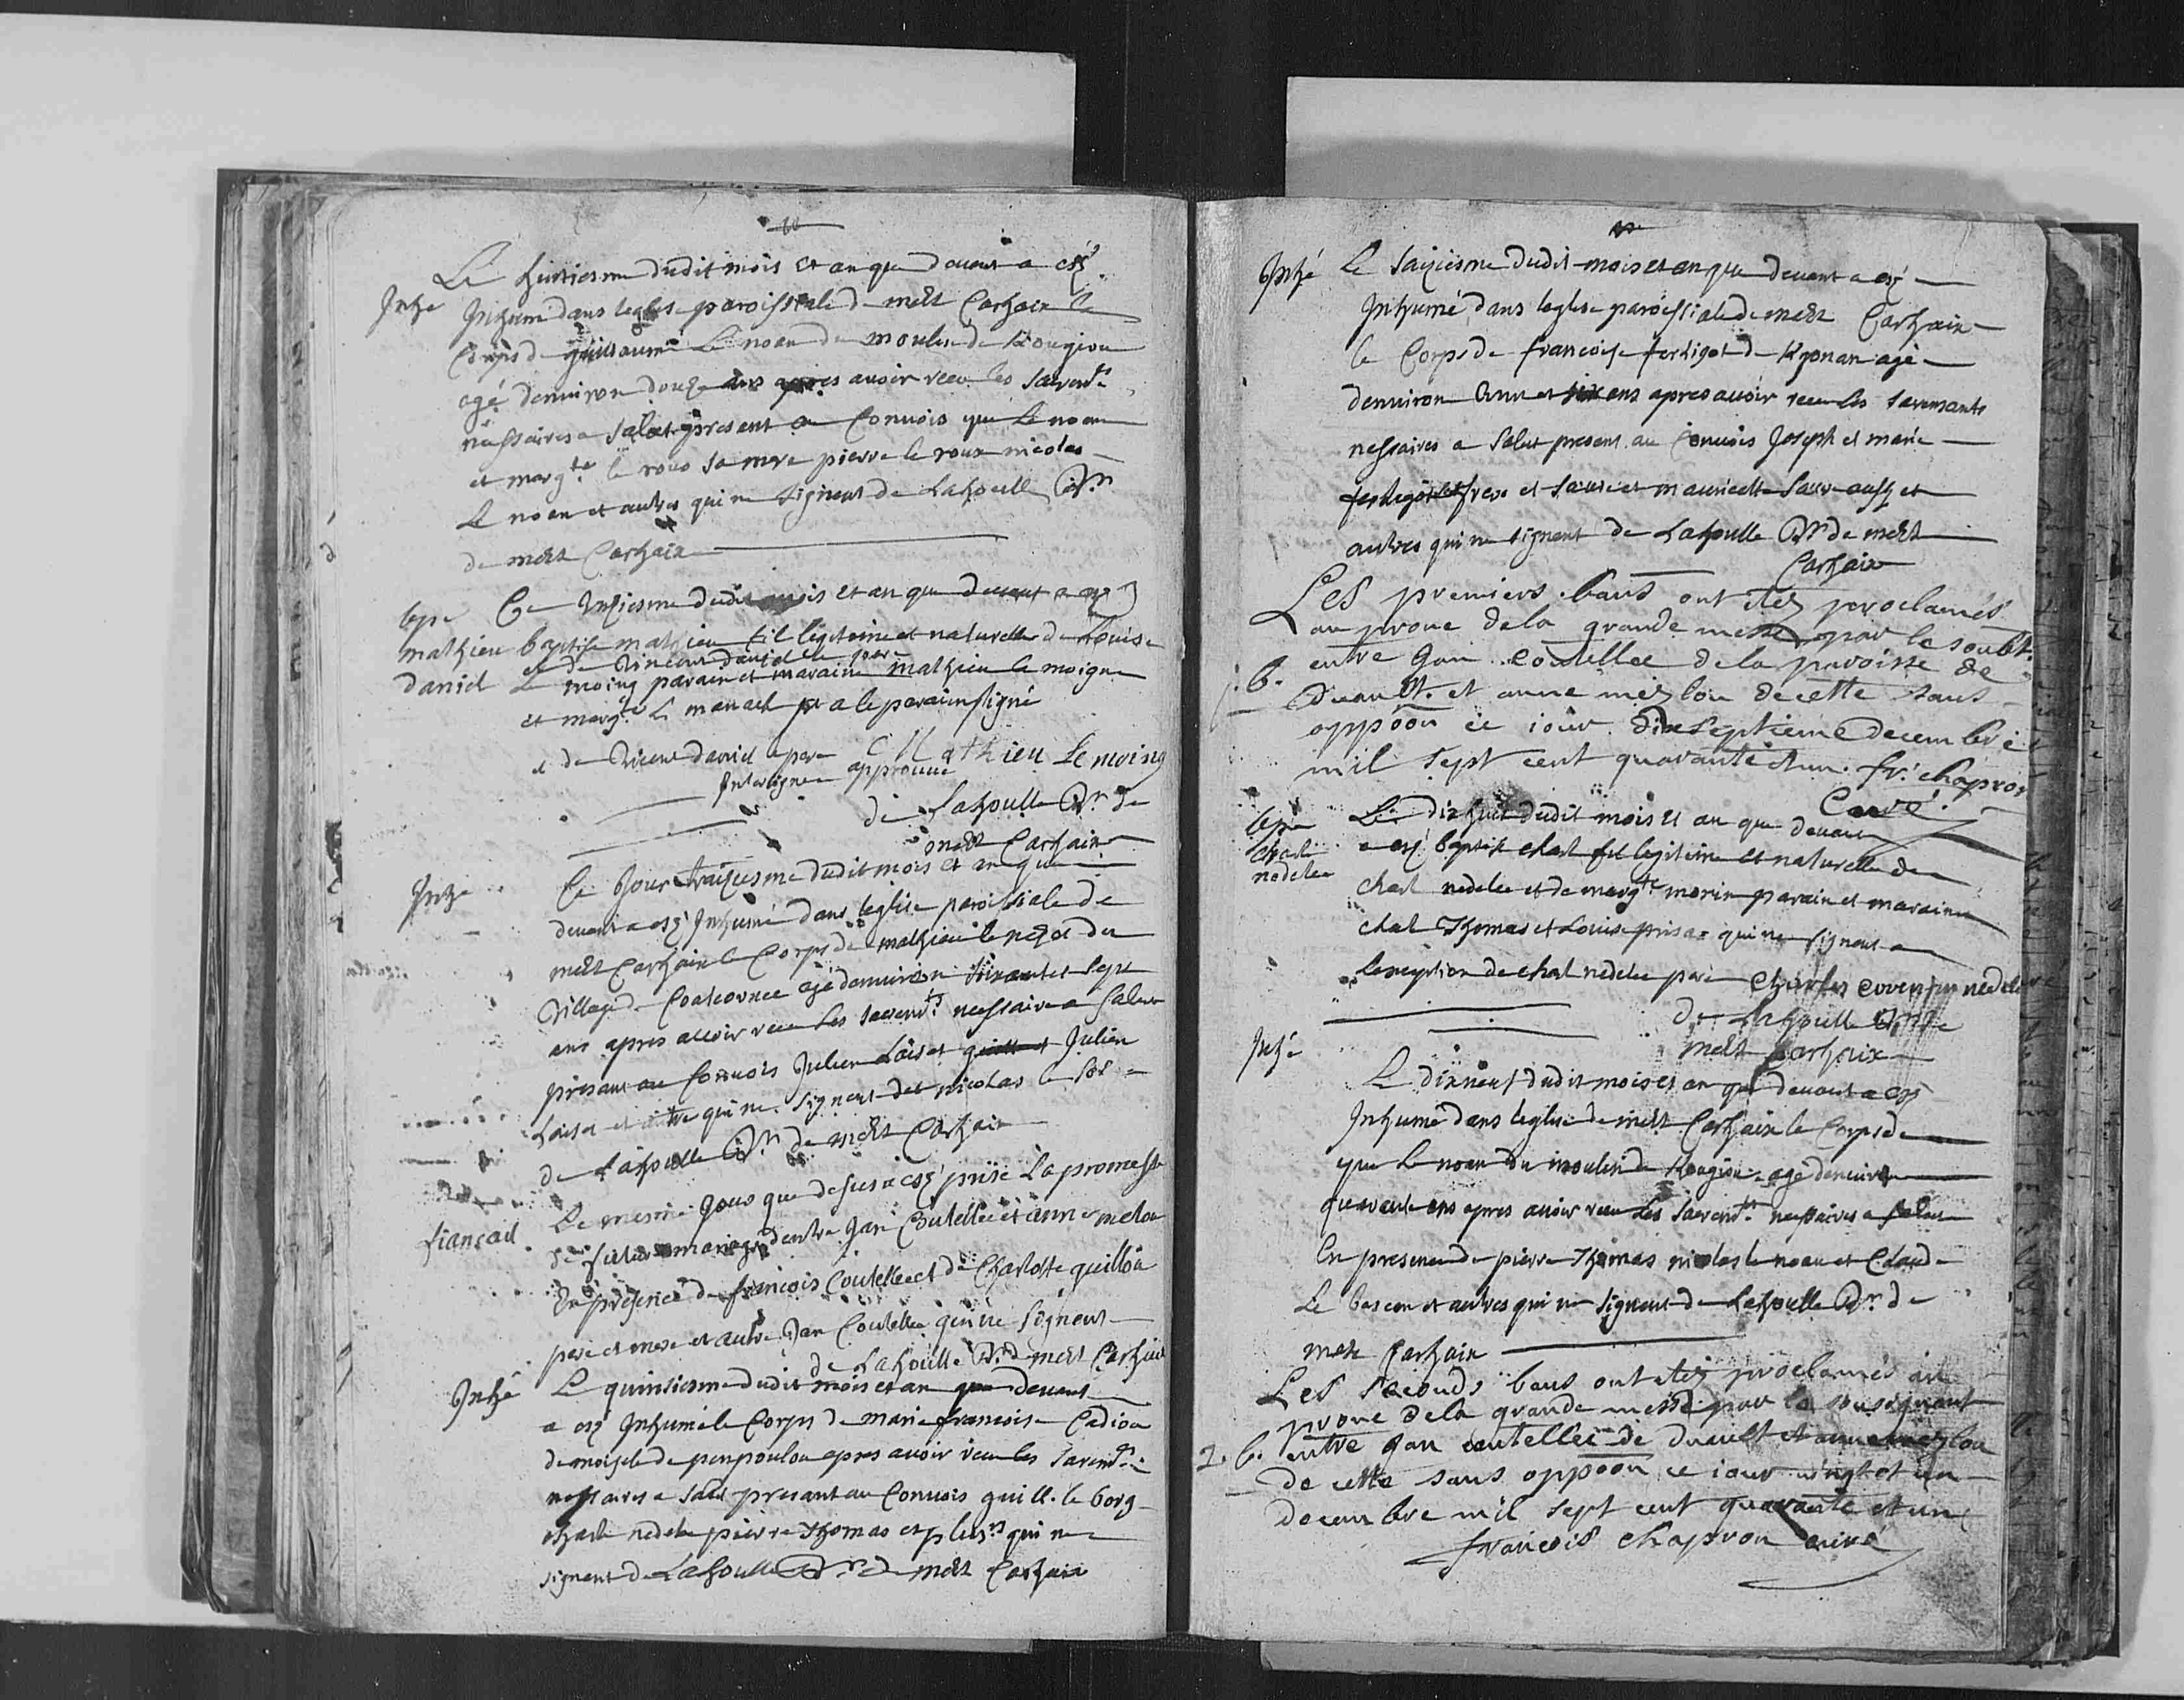 Le huitiesme dudit mois et an que devant a esté
Inhé Inhumé dans leglise paroissiale de mert Carhaix le
Corps de guillaume Le noan du moulin de Kougiou
agé denviron douze ans apres avoir receu les sacremts
nessaires a salut present au Convois yve Le noan
et margte le roux sa mere pierre le roux nicolas
Le noan et autres qui ne signent de Lahoulle
de mert Carhaix
bpé Ce Unziesme dudit mois et an que devant a esté
mathieu baptisé mathieu fil legitime et naturelle de Louise
et de Vincent daniel le pere
daniel Le moing parain et maraine mathieu le moigne
et margte Le manach et a le parain signé
et de Vincent daniel le pere Mathieu Le moing
Interligne approuvé
de Lahoulle de
mert Carhaix
Inhé Ce Jour traiziesme dudit mois et an que
devant a esté Inhumé dans leglise paroissiale de
mert Carhaix le Corps de mathieu du
Village de agé denviron soixante et sept
ans apres avoir receu Les sacremts nessaires a salut
present au Convois Julien et Julien
et autre qui ne signent et nicolas le
de Lahoulle de mert Carhaix
fiançail Le mesme Jour que desus a esté prise La promesse
de futur mariage dentre Jan Coutellec et anne melou
En presence de francois Coutellec et de Charlotte guillou
pere et mere et autre Jan Coutellec qui ne signent
de Lahoulle de mert Carhaix
Inhé Le quinsiesme dudit mois et an que devant
a esté Inhumé le Corps de marie francoise Cadiou
demoiselle de penpoulou apres avoir receu les sacremts
nessaires a salut presant au Convois guill. le borg
charle nedelec pierre Thomas et plusrs qui ne
signent de Lahoulle de mert Carhaix
Inhé Le saiziesme dudit mois et an que devant a esté
Inhumé dans leglise paroissiale de mert Carhaix
le Corps de francoise de Kgonan agé
denviron ans apres avoir receu les sacremants
nessaires a salut present au Convois Joseph et marie
frere et sœur et mauricette sœur ausy et
autres qui ne signent de Lahoulle de mert
Carhaix
Les premiers bans ont etez proclamés
au prone de la grande messe par le soubt.
1. b. entre Jan Coutellec de la paroisse de
Duault et anne mezlou de cette sans
oppôon ce jour dix septieme decembre
mil sept cent quarante et un. fr. chapron
Curé
bpé Le dixhuit dudit mois et an que devant
charle a esté baptisé charl fil legitime et naturelle de
nedelec charl nedelec et de margte morin parain et maraine
charl Thomas et Louise qui ne signent a
lexception de charl nedelec pere Charles corentin nedelec
de Lahoulle de
mert Carhaix
Inhé Le dixneuf dudit mois et an que devant a esté
Inhumé dans leglise de mert Carhaix le Corps de
yve Le noan du moulin de Kougiou agé denviron
quarante ans apres avoir receu Les sacremts nessaires a salut
En presence de pierre Thomas nicolas le noan et Claude
Le bescon et autres qui ne signent de Lahoulle de
mert Carhaix
Les seconds bans ont etez proclamés au
prone de la grande messe par le sousignant
2. b. entre Jan coutellec de Duault et anne mezlou
de cette sans oppôon ce jour vingt et un
decembre mil sept cent quarante et un
françois chapron curé